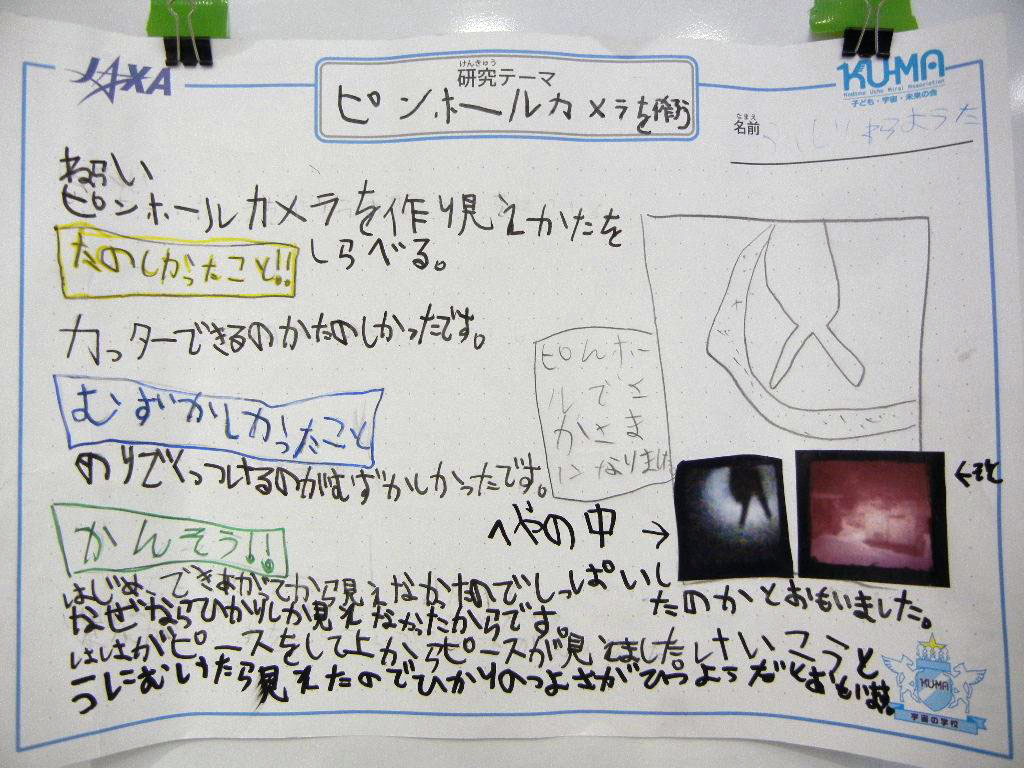 JAXA
けんきゅう
研究テーマ
ピンホールカメラを
KU-MA
Kodomo Uchu Mirai Association
子ども・宇宙・未来の会
なまえ
名前
ねらい
ピンホールカメラを作り見えかたを
しらべる。
たのしかったこと!!
カッターできるのがたのしかったです。
むずかしかったこと
のりでくっつけるのがむずかしかったです。
ピんホー
ルでさ
かさま
になりました
←そと
へやの中→
かんそう!!
はじめ、できあがってから見えなかたのでしっぱいし
たのかとおもいました。
なぜならひかりしか見えなかったからです。
ははがピースをして上からピースが見えました。けいこうと
うにむいたら見えたのでひかりのつよさがひつようだとおもいます。
KU-MA
宇宙の学校